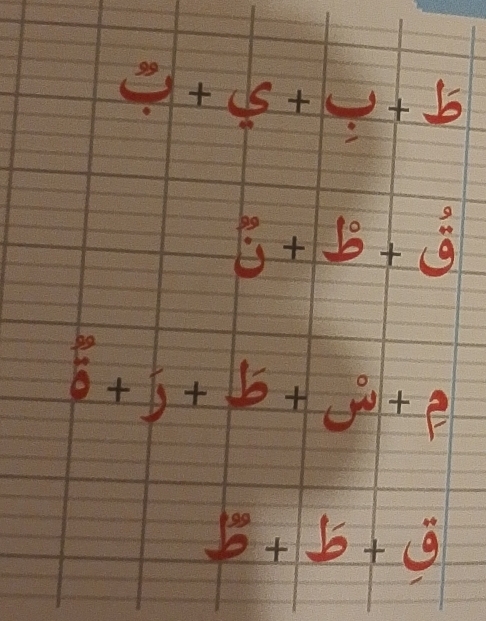 طَ + بِ + ي + بٌ
قُ + طْ + نٌ
مِ + سْ + طَ + رَ + ةٌ
قِ + طَ + طٌ